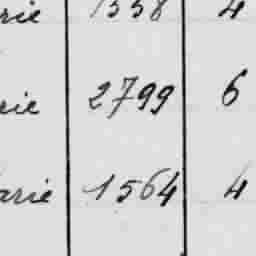 rie 1558 4
rie 2799 6
arie 1564 4